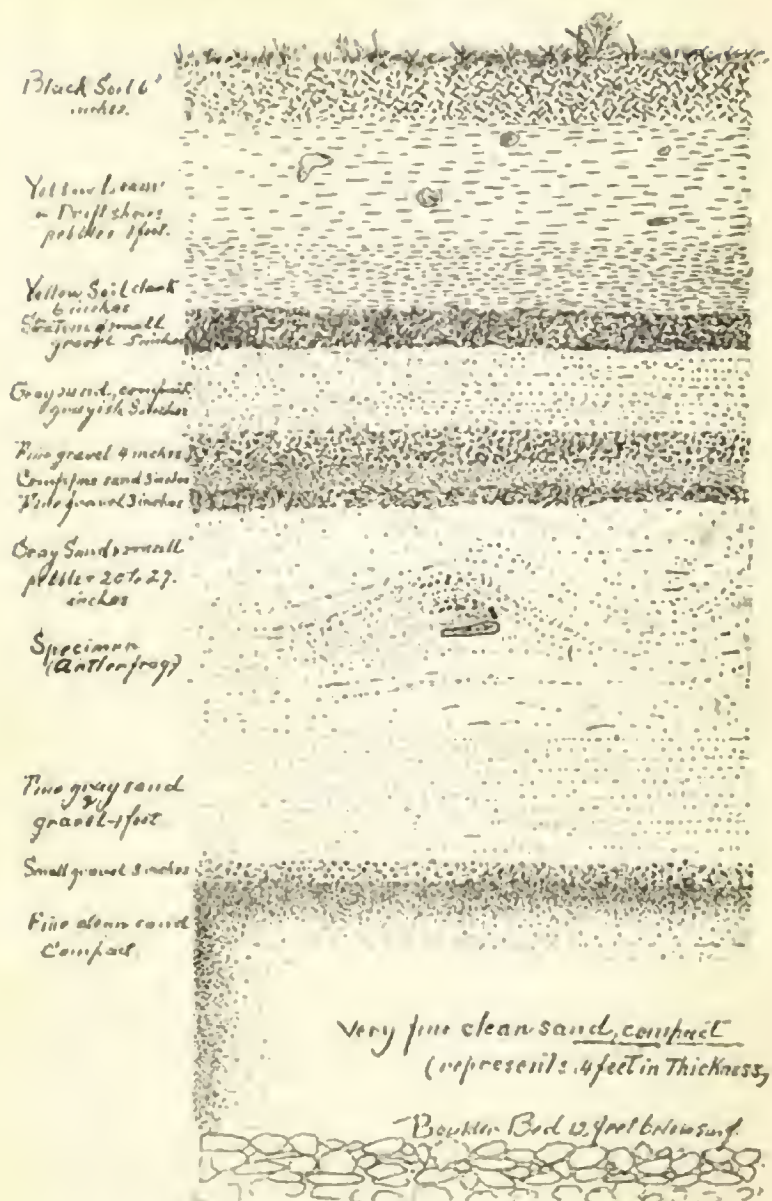 Black Soil 6
inches.
Yellow Loam
or Drift shows
pebbles 1 foot.
Yellow Soil dark
6 inches
Stratum small
gravel 5 inches
Gray sand, compact
grayish 8 inches
Fine gravel 4 inches
Comp. fine sand 3 inches
Fine gravel 3 inches
Gray Sand small
pebbles 20 to 27.
inches
Specimen
(Antler frag)
Fine gray sand
&
gravel-1 foot
Small gravel 3 inches
Fine clean sand
Compact.
Very fine clean sand, compact
(represents 4 feet in Thickness,
Boulder Bed 12 feet below surf.